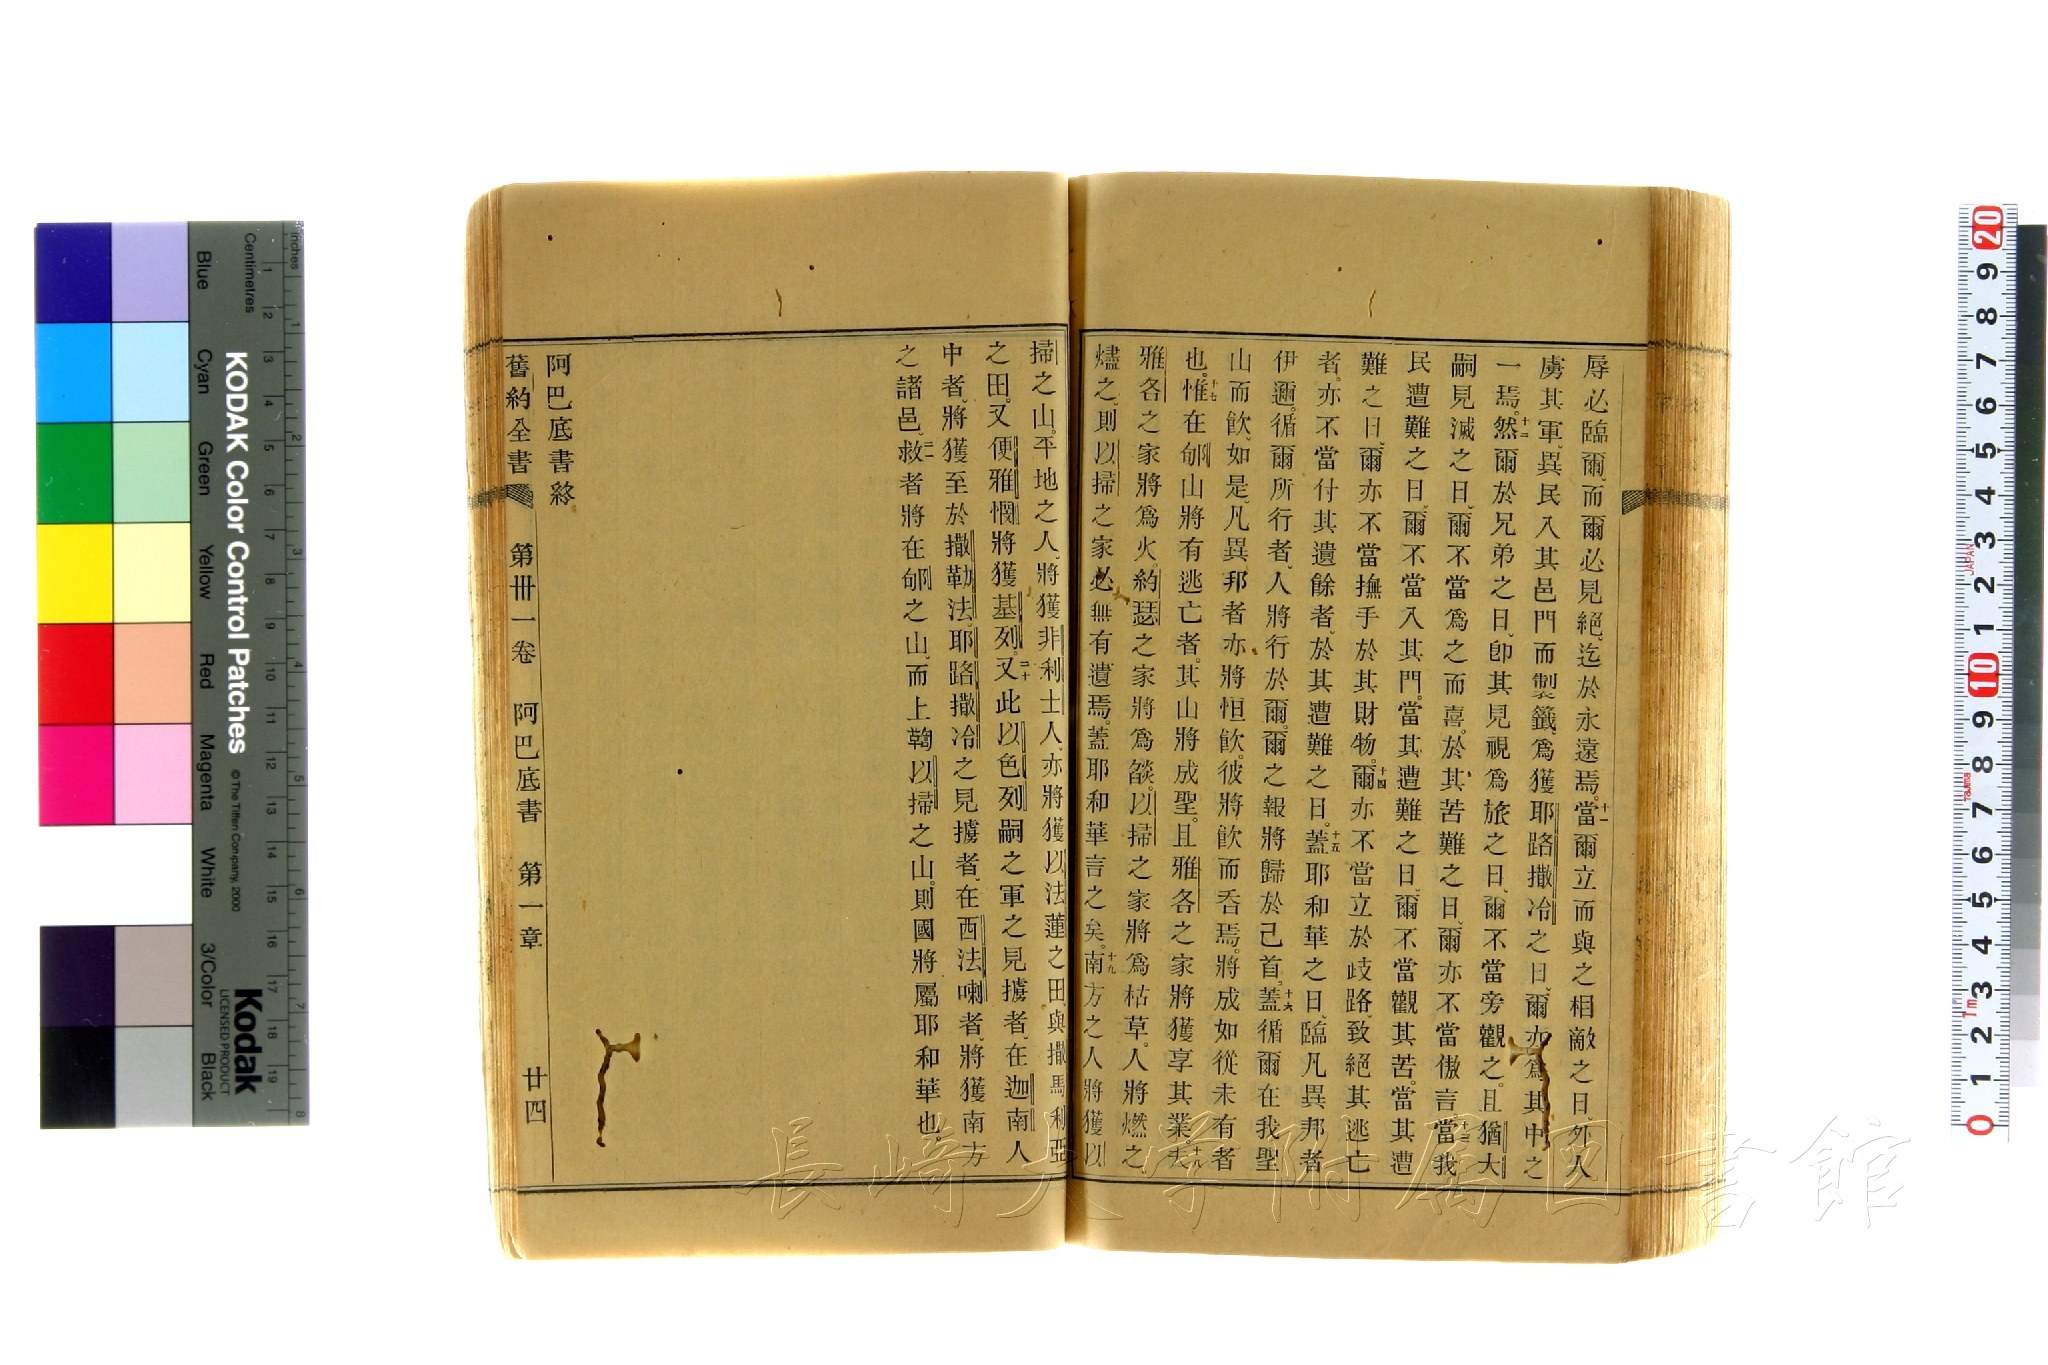 辱必臨爾、而爾必見絕、迄於永遠焉。十一當爾立而與之相敵之日、外人
虜其軍、異民入其邑門而製籤、爲獲耶路撒冷之日、爾亦爲其中之
一焉。十二然爾於兄弟之日、卽其見視爲旅之日、爾不當旁觀之。且猶大
嗣見滅之日、爾不當爲之而喜。於其苦難之日、爾亦不當傲言。十三當我
民遭難之日、爾不當入其門。當其遭難之日、爾不當觀其苦。當其遭
難之日、爾亦不當撫手於其財物。十四爾亦不當立於歧路、致絕其逃亡
者。亦不當付其遺餘者、於其遭難之日。十五蓋耶和華之日、臨凡異邦者
伊邇。循爾所行者、人將行於爾。爾之報將歸於己首。十六蓋循爾在我聖
山而飮、如是、凡異邦者亦將恒飮。彼將飮而吞焉。將成如從未有者
也。十七惟在郇山將有逃亡者。其山將成聖。且雅各之家將獲享其業。十八夫
雅各之家將爲火。約瑟之家將爲燄。以掃之家將爲枯草。人將燃之
燼之、則以掃之家必無有遺焉。蓋耶和華言之矣。十九南方之人將獲以
掃之山。平地之人、將獲非利士人、亦將獲以法蓮之田、與撒馬利亞
之田。又便雅憫將獲基列。二十又此以色列嗣之軍之見擄者、在迦南人
中者、將獲至於撒勒法。耶路撒冷之見擄者、在西法喇者、將獲南方
之諸邑。二一救者將在郇之山、而上鞫以掃之山。則國將屬耶和華也
阿巴底書終
舊約全書 第卅一卷 阿巴底書 第一章 廿四
長崎大學附屬図書館
KODAK Color Control Patches
© The Tiffen Company, 2000
Kodak
LICENSED PRODUCT
Inches
Centimetres
Blue Cyan Green Yellow Red Magenta White 3/Color Black
1 2 3 4 5 6 7 8
1 2 3 4 5 6 7 8 9 10 11 12 13 14 15 16 17 18 19
20 9 8 7 6 5 4 3 2 1 10 9 8 7 6 5 4 3 2 1 0
JAPAN